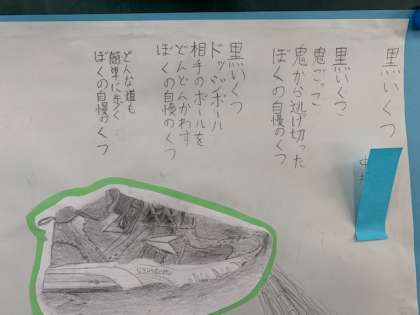 黒いくつ
黒いくつ
鬼ごっこ
鬼から逃げ切った
ぼくの自慢のくつ
黒いくつ
ドッジボール
相手のボールを
どんどんかわす
ぼくの自慢のくつ
どんな道も
簡単に歩く
ぼくの自慢のくつ